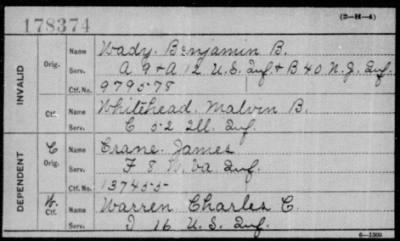 178374
(2-H-4)
INVALID
Orig. Name Wady, Benjamin B.
Serv. A 9 & A 12 U.S. Inf & B 40 N.J. Inf.
Ctf. No. 979578
Ctf. Name Whitehead, Malvin B.
Serv. C 52 Ill. Inf.
DEPENDENT
C Orig. Name Crane, James
Serv. F 8 W. Va Inf.
Ctf. No. 137455
W. Ctf. Name Warren Charles C.
Serv. D 16 U. S. Inf.